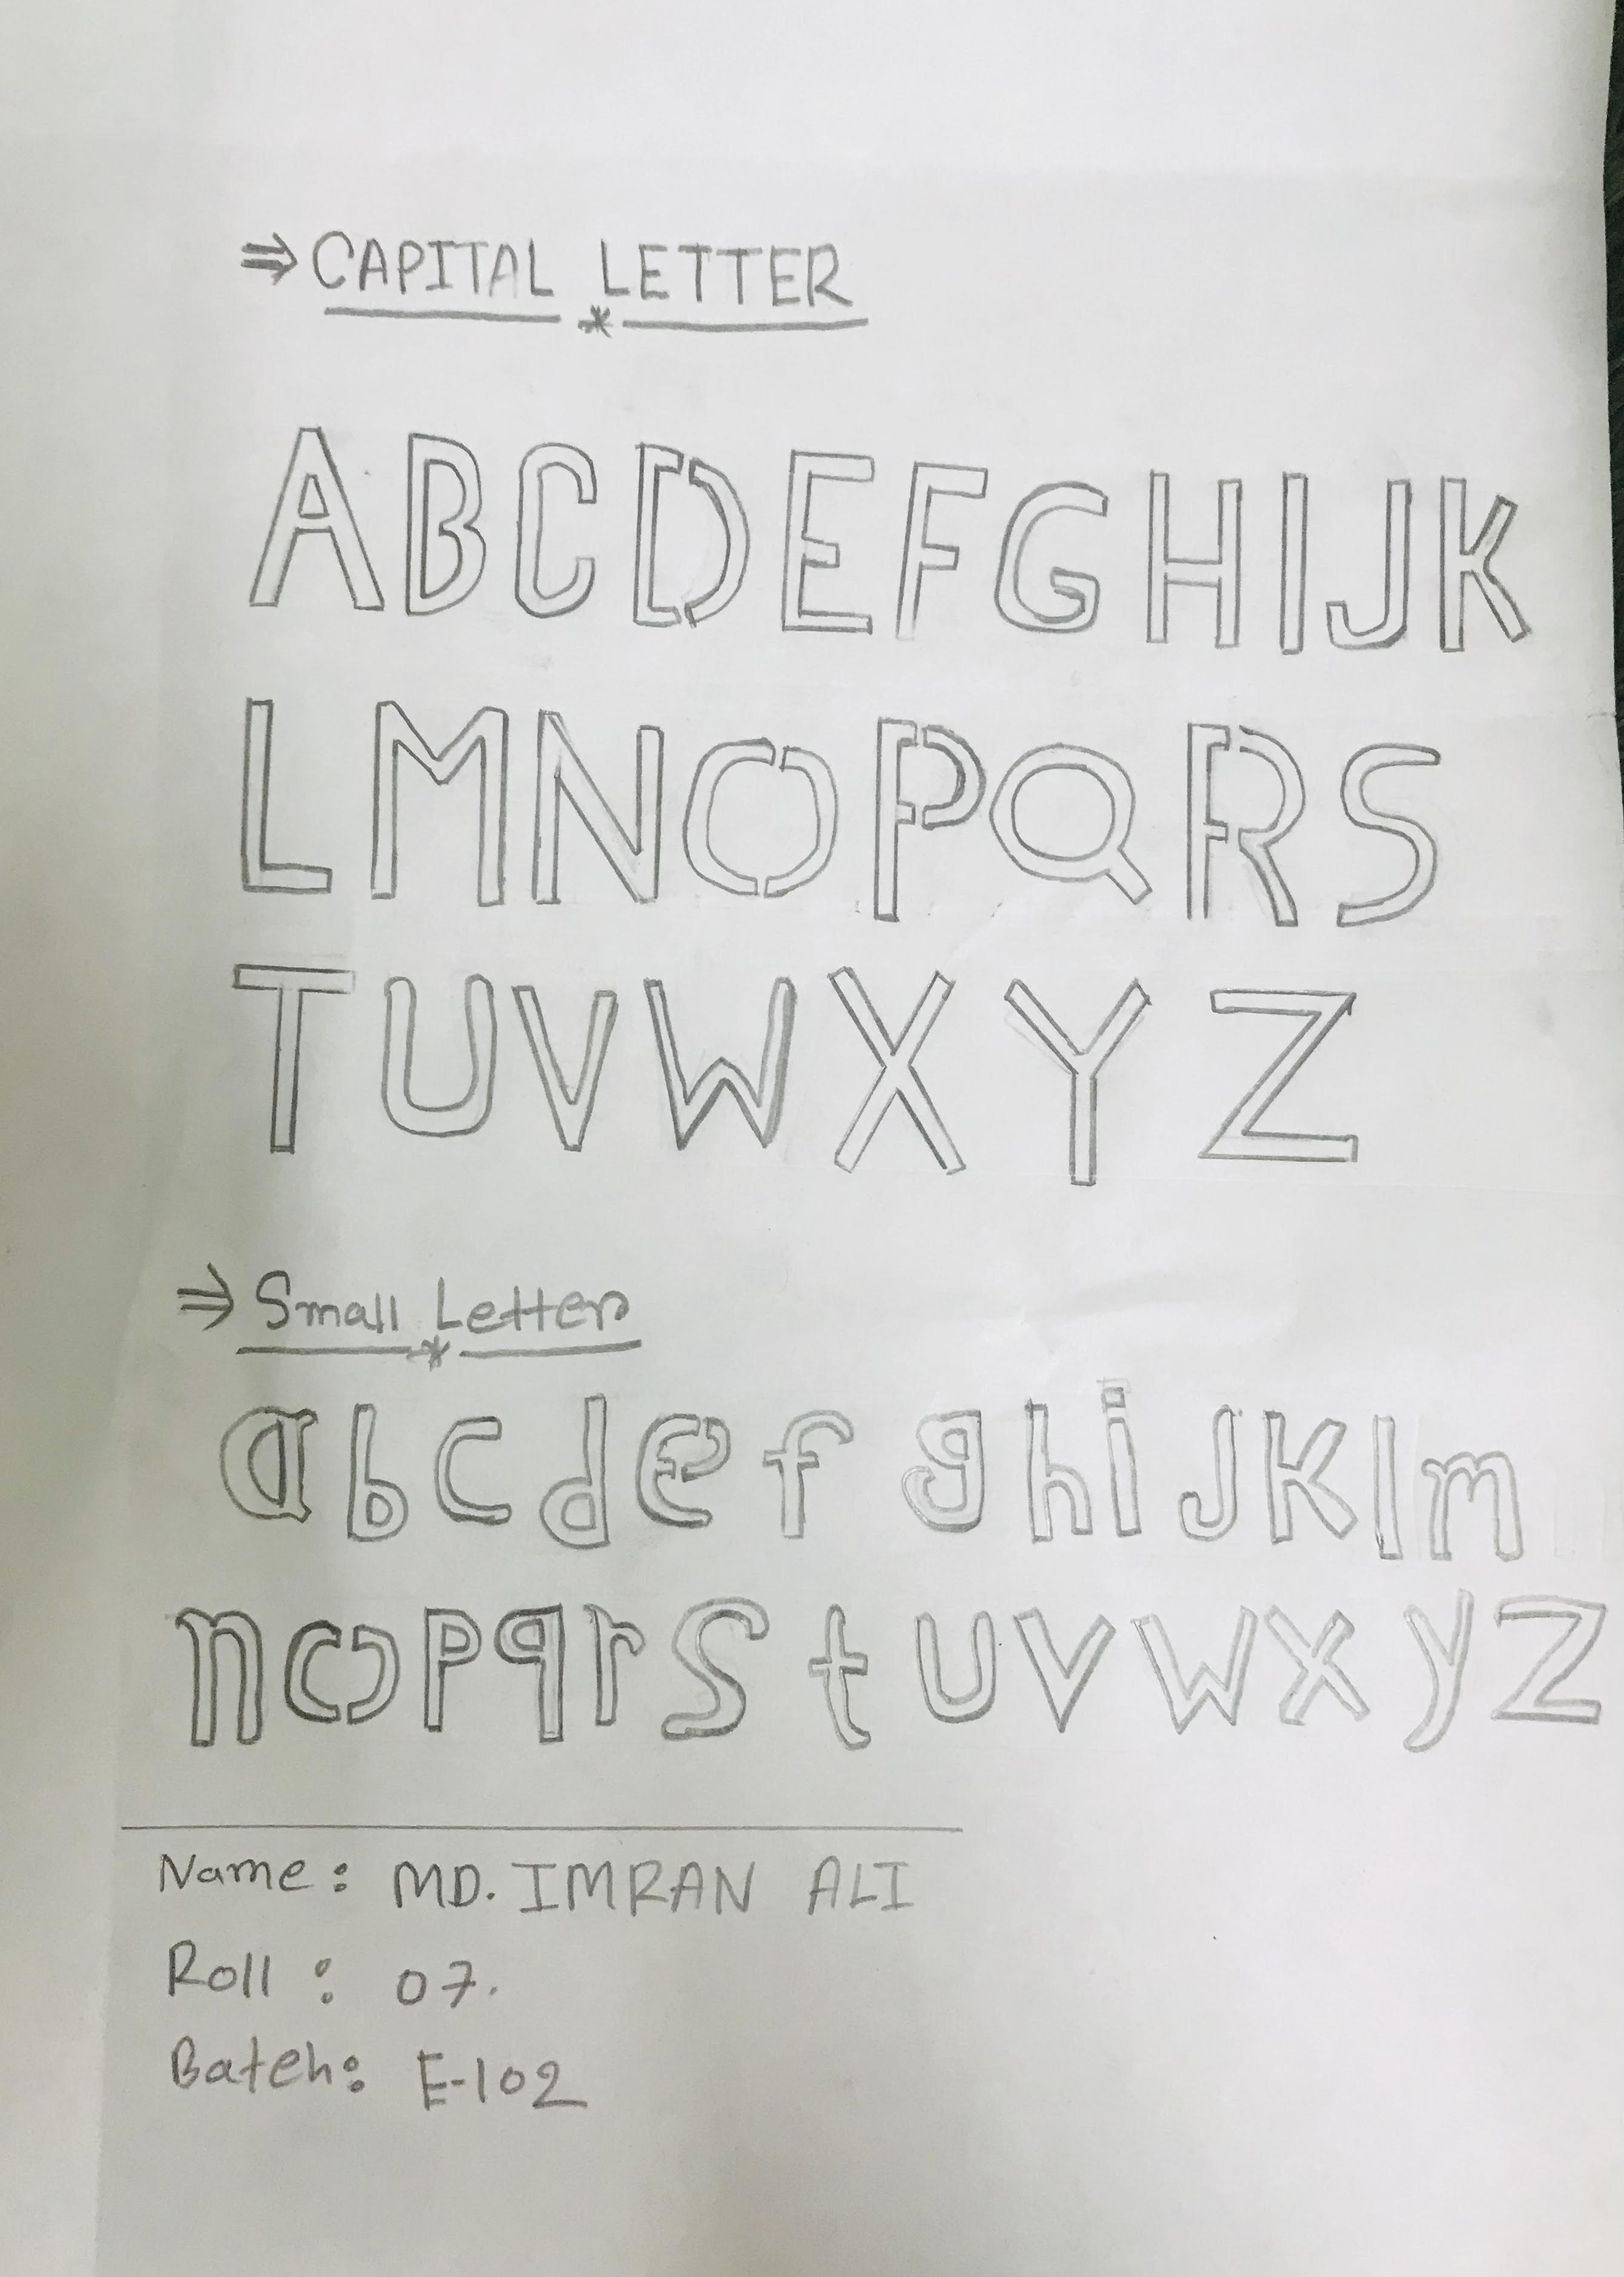 ⇒ CAPITAL LETTER
*
A B C D E F G H I J K
L M N O P Q R S
T U V W X Y Z
⇒ Small Letter
*
a b c d e f g h i j k l m
n o p q r s t u v w x y z
Name: MD. IMRAN ALI
Roll : 07.
Batch: E-102